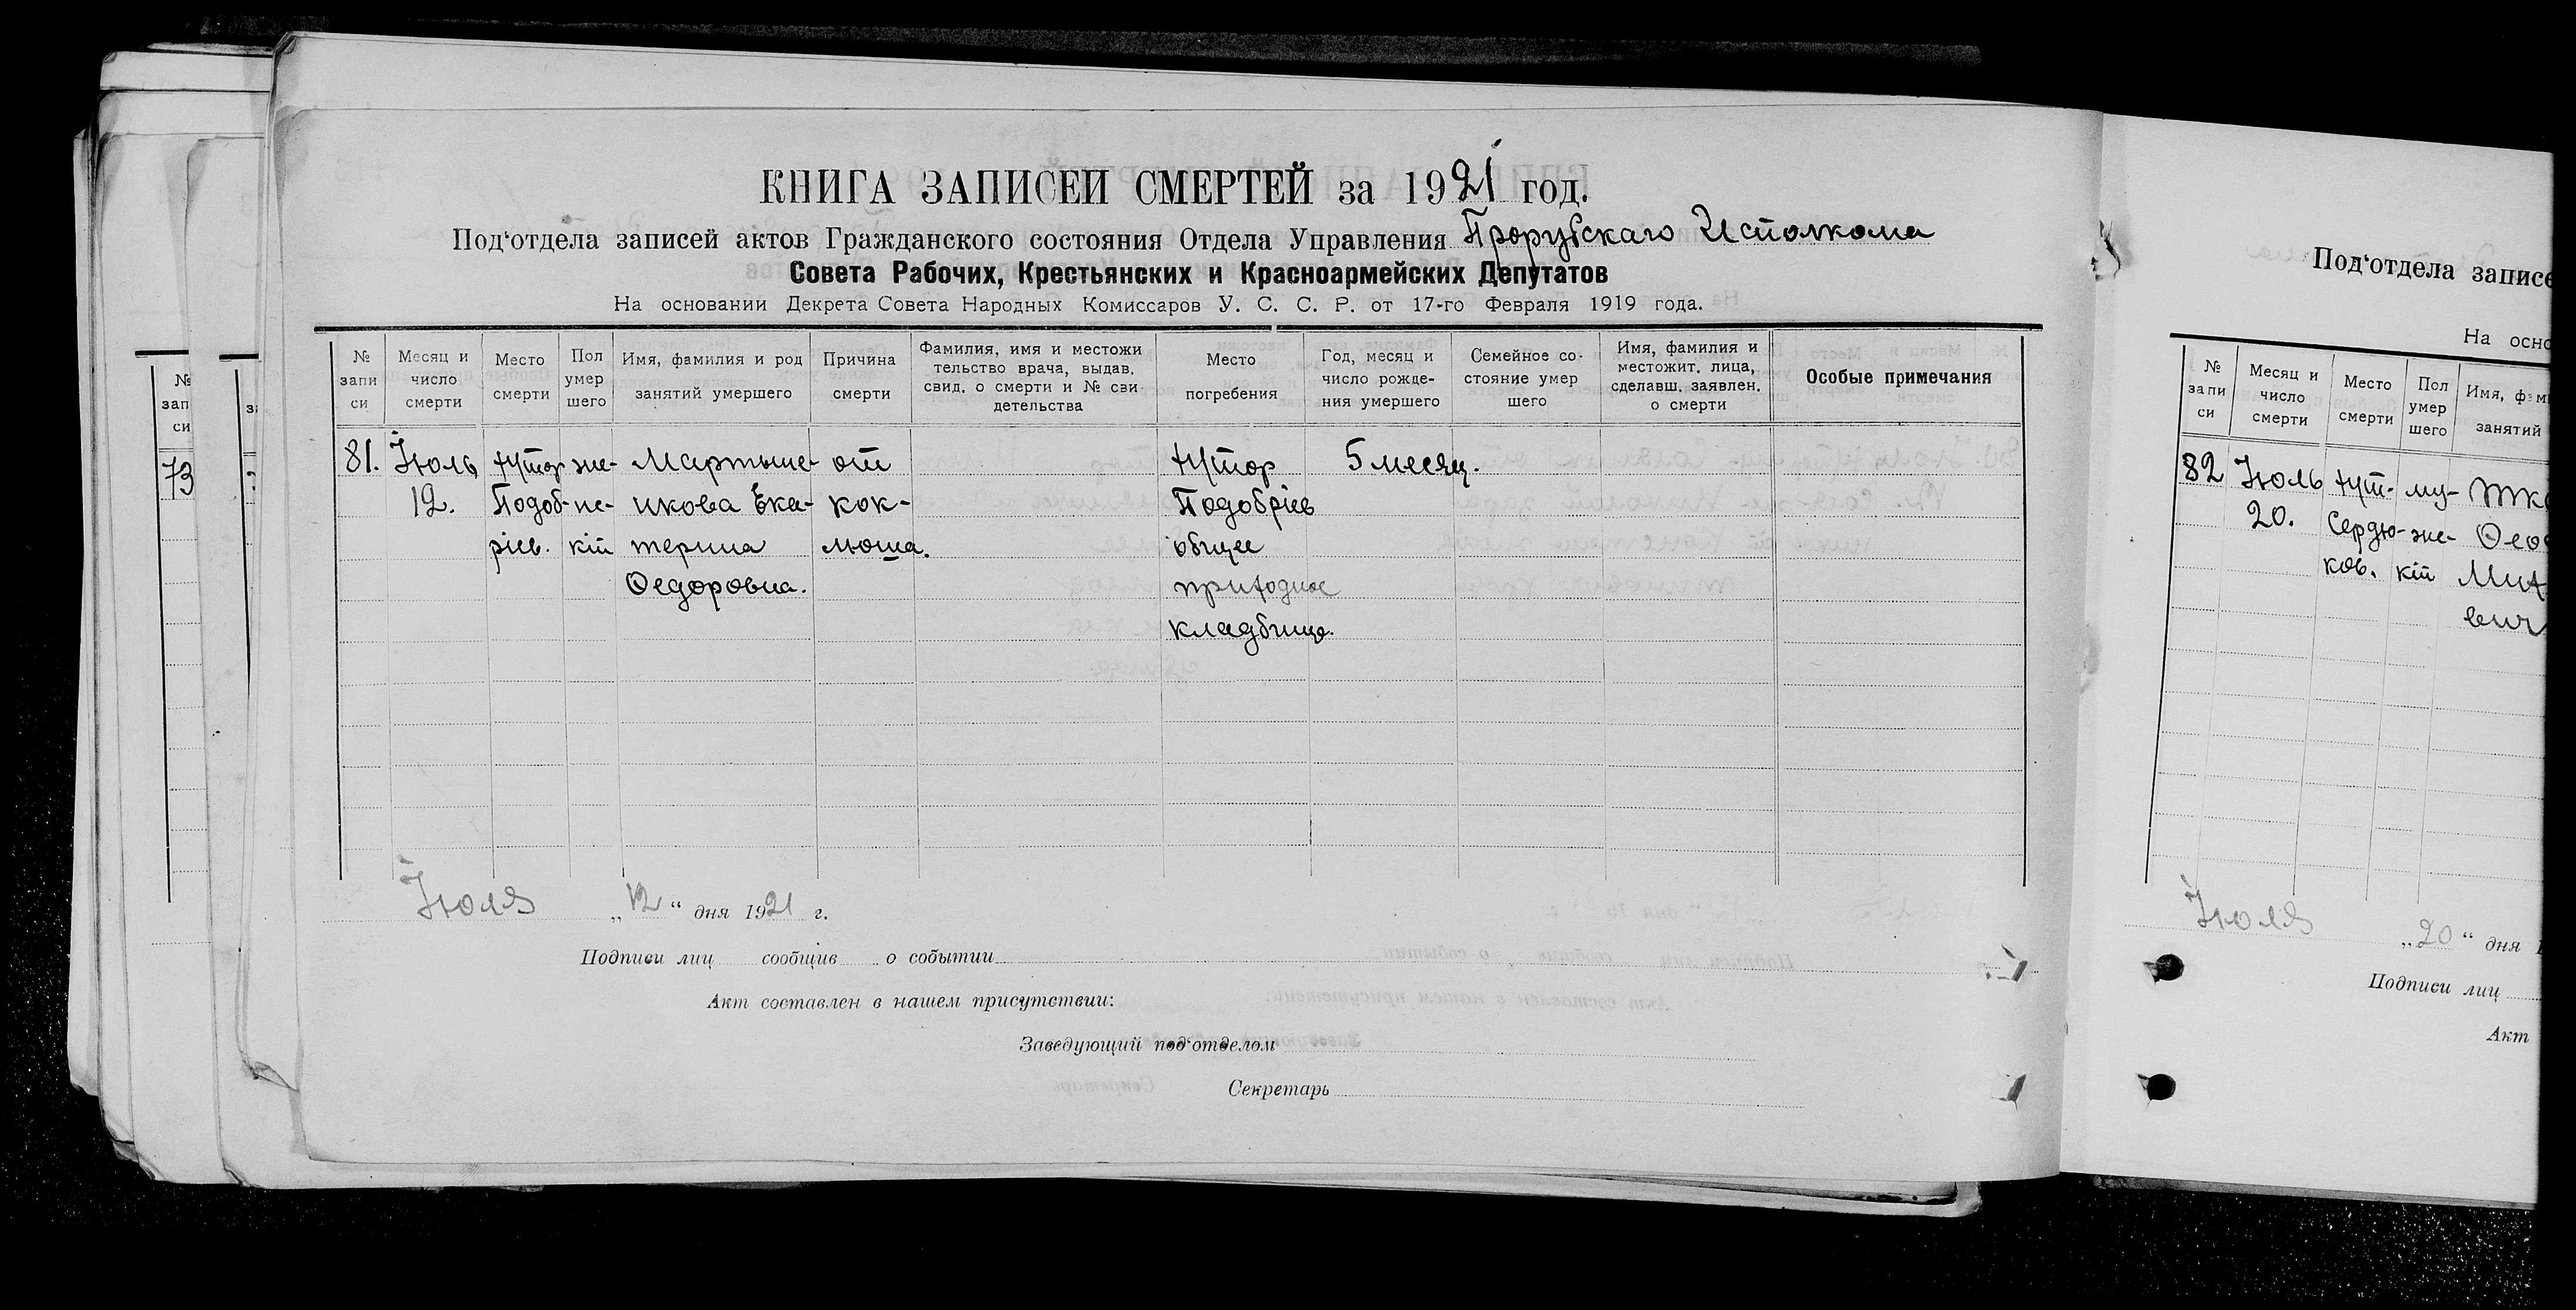 КНИГА ЗАПИСЕЙ СМЕРТЕЙ за 1921 год.
Под‘отдела записей актов Гражданского состояния Отдела Управления Прорубскаго Исполкома
Совета Рабочих, Крестьянских и Красноармейских Депутатов
На основании Декрета Совета Народных Комиссаров У. С. С. Р. от 17-го Февраля 1919 года.
№ запи си
Месяц и число смерти
Место смерти
Пол умер шего
Имя, фамилия и род занятий умершего
Причина смерти
Фамилия, имя и местожи тельство врача, выдав. свид. о смерти и № сви детельства
Место погребения
Год, месяц и число рожде- ния умершего
Семейное со- стояние умер шего
Имя, фамилия и местожит. лица, сделавш. заявлен. о смерти
Особые примечания
81. Июль хутор же- Мартыне- от хутор 5 месяц.
12. Подоб- нс- икова Ека- кок- Подобріев
ріев. кій терина люша. общее
Ѳедоровна. приходное
кладбище.
Июля „12“ дня 1921 г.
Подписи лиц сообщив о событии
Акт составлен в нашем присутствии:
Заведующий под‘отделом
Секретарь
№ зап си
73
Под‘отдела записе
На осно
№ запи си
Месяц и число смерти
Место смерти
Пол умер шего
Имя, фами занятий
82 Июль хут- му- Тка
20. Сердю- же- Ѳеод
ков. кій Мих
вич
Июля „20“ дня 1
Подписи лиц
Акт